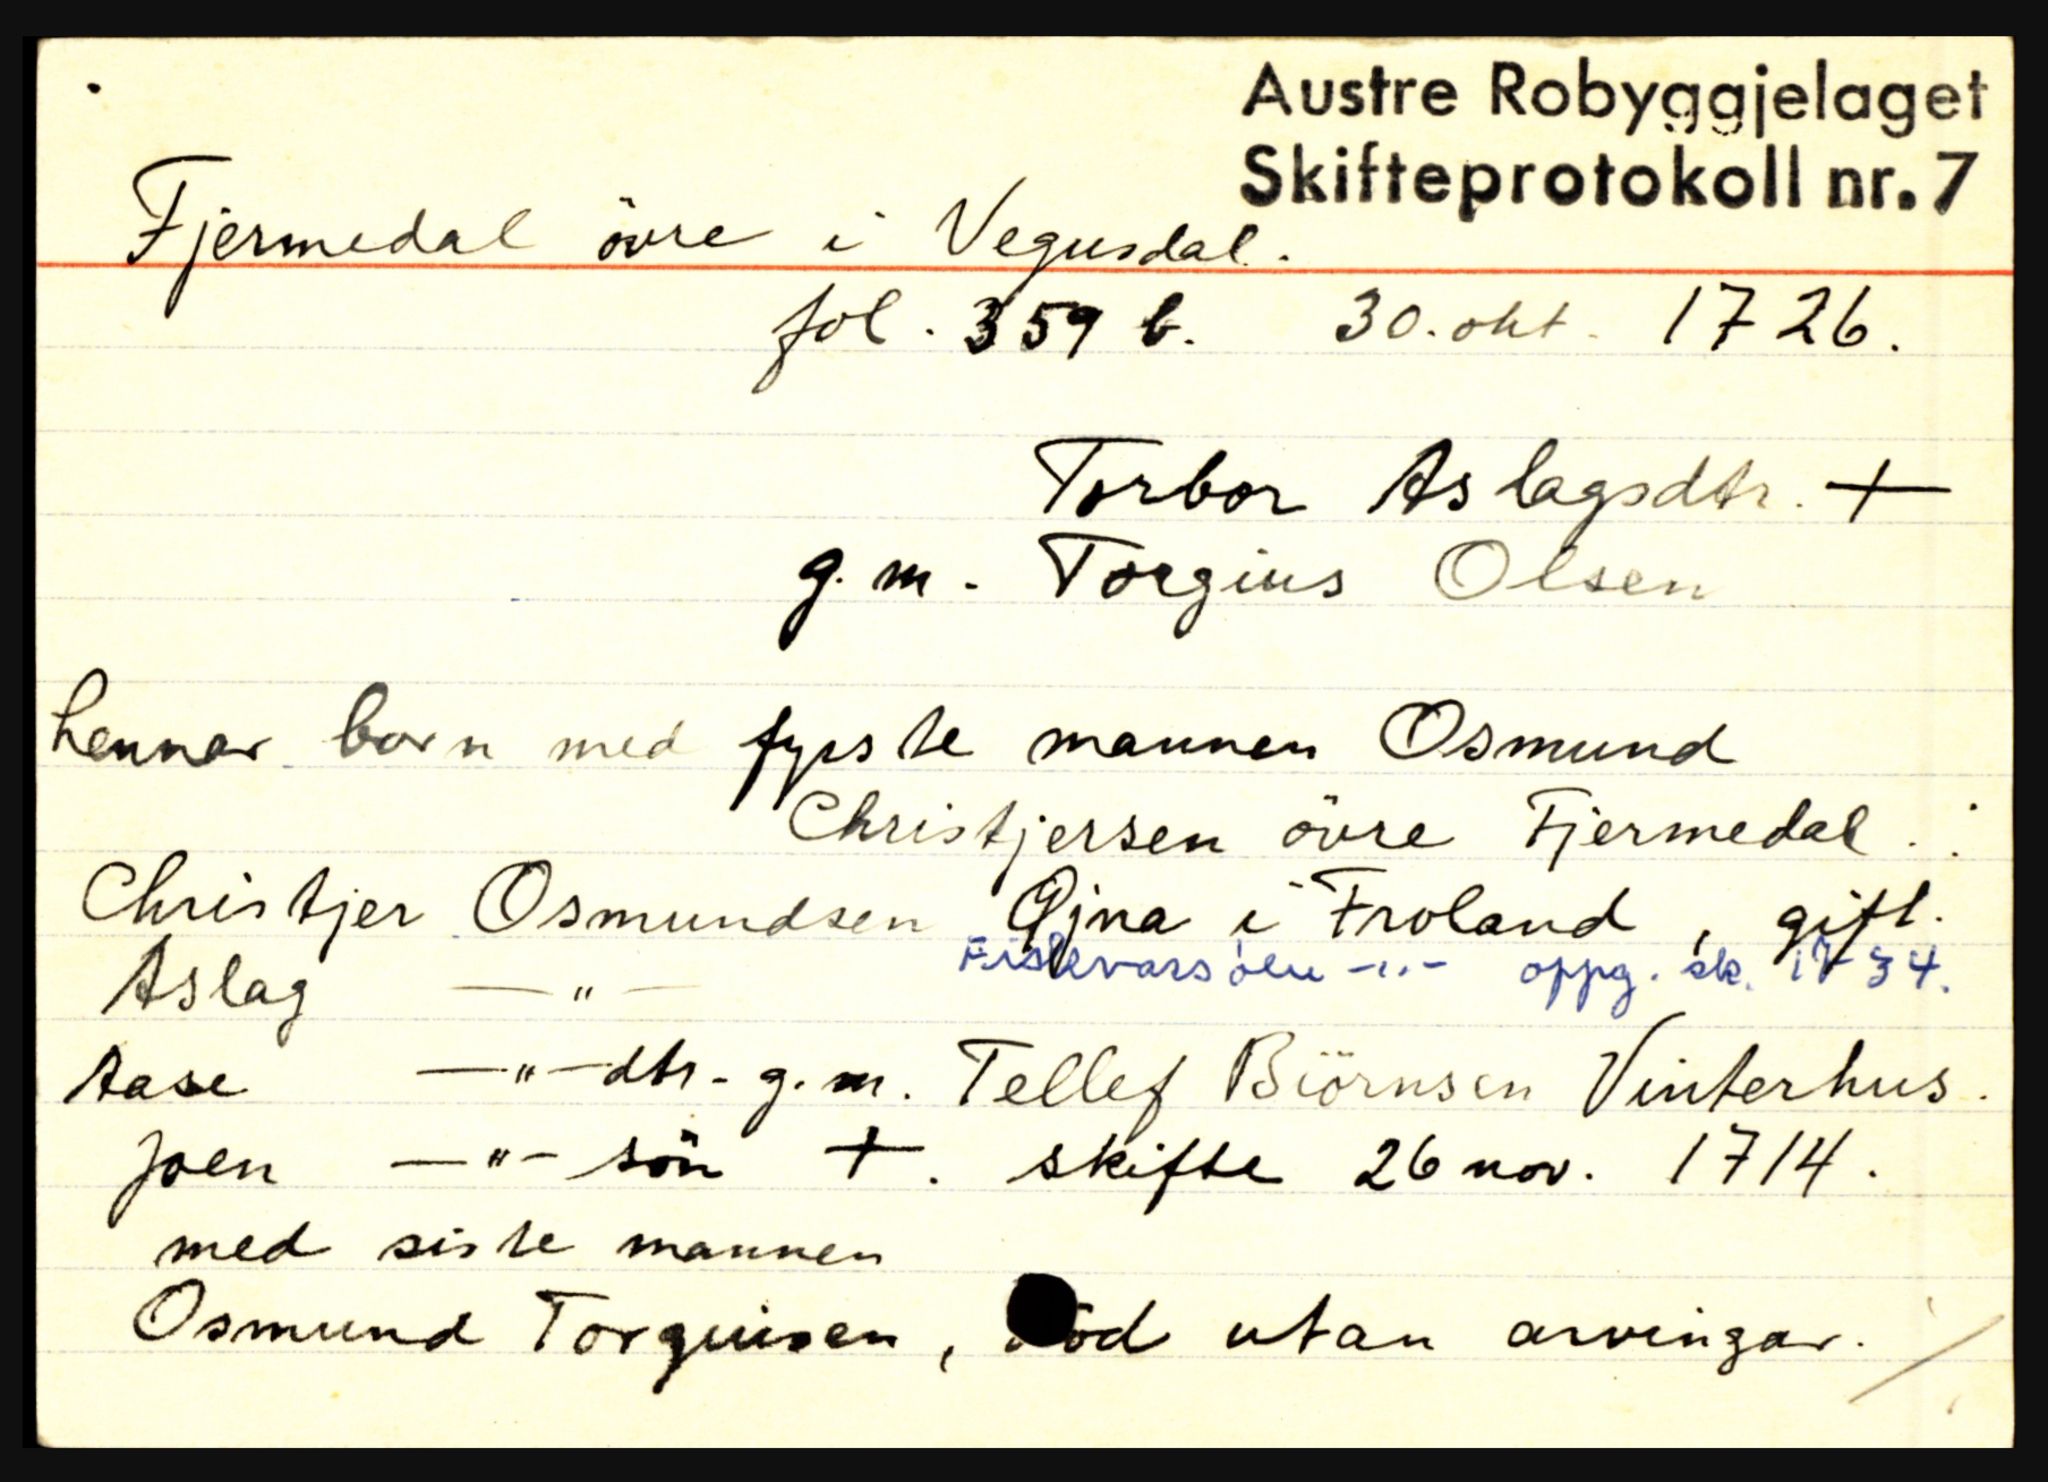 Austre Robyggjelaget
Skifteprotokoll nr. 7
Fjermedal övre i Vegusdal.
fol. 359 b. 30. okt. 1726.
Torbor Aslagsdtr. +
g. m. Torgius Olsen
hennar born med fyrste mannen Osmund
Christjersen övre Fjermedal. :
Christjer Osmundsen Öjna i Froland, gift.
Aslag —"— Fiskvarsölu -"- oppg. sk. 1734.
Aase —"—dtr. g. m. Tellef Biörnsen Vinterhus.
Joen —"— sön +. skifte 26 nov. 1714.
med siste mannen
Osmund Torguisen, död utan arvingar.